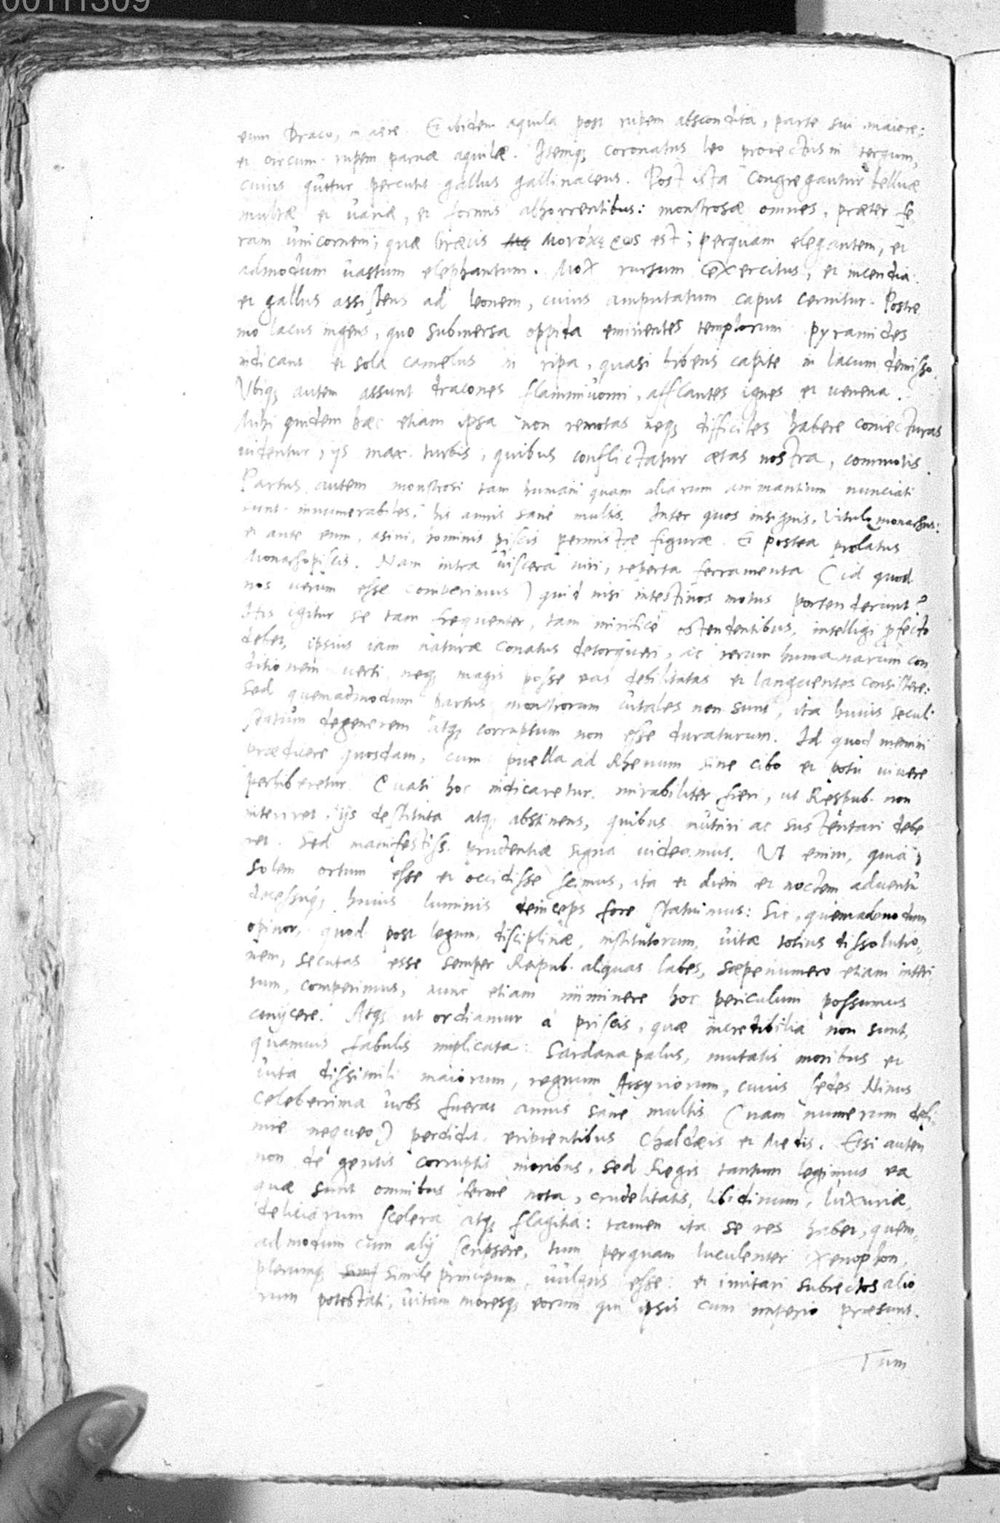 00111309
eum Draco, in aere. Et ibidem aquila post rupem abscondita, parte sui maiore;
et circum rupem paruæ aquilæ. Itemq; coronatus leo prouectus in tergum,
cuius guttur percutit gallus gallinaceus. Post ista congregantur belluæ
multæ et uariæ, et formis abhorrentibus: monstrosæ omnes, præter fe
ram unicornem; quæ Græcis μονόκερως est; perquam elegantem, et
admodum uastum elephantum. Mox rursum exercitus, et incendia
et gallus assistens ad leonem, cuius amputatum caput cernitur. Postre
mo lacus ingens, quo submersa oppida eminentes templorum pyramides
indicant et sola camelus in ripa, quasi bibens capite in lacum demisso.
Vbiq; autem assunt dracones flammiuomi, afflantes ignes et uenena.
Mihi quidem hæc etiam ipsa non remotas neq; difficiles habere coniecturas
uidentur, ijs max. turbis, quibus conflictatur ætas nostra, commotis.
Partus autem monstrosi tam humani quam aliarum animantium nunciati
sunt innumerabiles, his annis sane multis. Inter quos insignis, Vitulomonachus:
et ante eum, asini, hominis piscis permistæ figuræ. Et postea prolatus
Monachopiscis. Nam intra uiscera uiri, reperta ferramenta (id quod
nos uerum esse comperimus) quid nisi intestinos motus portenderunt?
His igitur se tam frequenter, tam mirifice ostendentibus, intelligi profecto
debet, ipsius iam naturæ conatus detorqueri, ac rerum humanarum con
ditionem uerti neq; magis posse eas debilitatas et languentes consistere:
Sed quemadmodum partus monstrorum uitales non sunt, ita huius seculi
statum degenerem atq; corruptum non esse duraturum. Id quod memini
prædicere quosdam, cum puella ad Rhenum sine cibo et potu uiuere
perhiberetur. Quasi hoc indicaretur mirabiliter fieri, ut Respub. non
interiret, ijs destituta atq; abstinens, quibus nutriri ac sustentari debe
ret. Sed manifestiss. prudentiæ signa uideamus. Vt enim, quia
solem ortum esse et occidisse scimus, ita et diem et noctem aduentu
decessuq; huius luminis deinceps fore statuimus: Sic, quemadmodum
opinor, quod post legum, disciplinæ, institutorum, uitæ totius dissolutio,
nem, secutas esse semper Rerpub. aliquas labes, sæpenumero etiam interi
tum, comperimus, nunc etiam imminere hoc periculum possumus
conijcere. Atq; ut ordiamur à priscis, quæ incredibilia non sunt,
quamuis fabulis implicata: Sardanapalus, mutatis moribus et
uita dissimili maiorum, regnum Assyriorum, cuius sedes Ninus
celeberrima urbs fuerat annis sane multis (quam numerum defi,
nire nequeo) perdidit eripientibus Chaldæis et Medis. Etsi autem
non de gentis corruptis moribus, sed Regis tantum legimus ea
quæ sunt omnibus ferme nota, crudelitatis, libidinum, luxuriæ,
deliciarum scelera atq; flagitia: tamen ita se res habet, quem,
admodum cum alij scripsere, tum perquam luculenter Xenophon,
plerunq; simile principum, uulgus esse: et imitari subiectos alio
rum potestati, uitam moresq; eorum qui ipsis cum imperio præsunt.
Tum